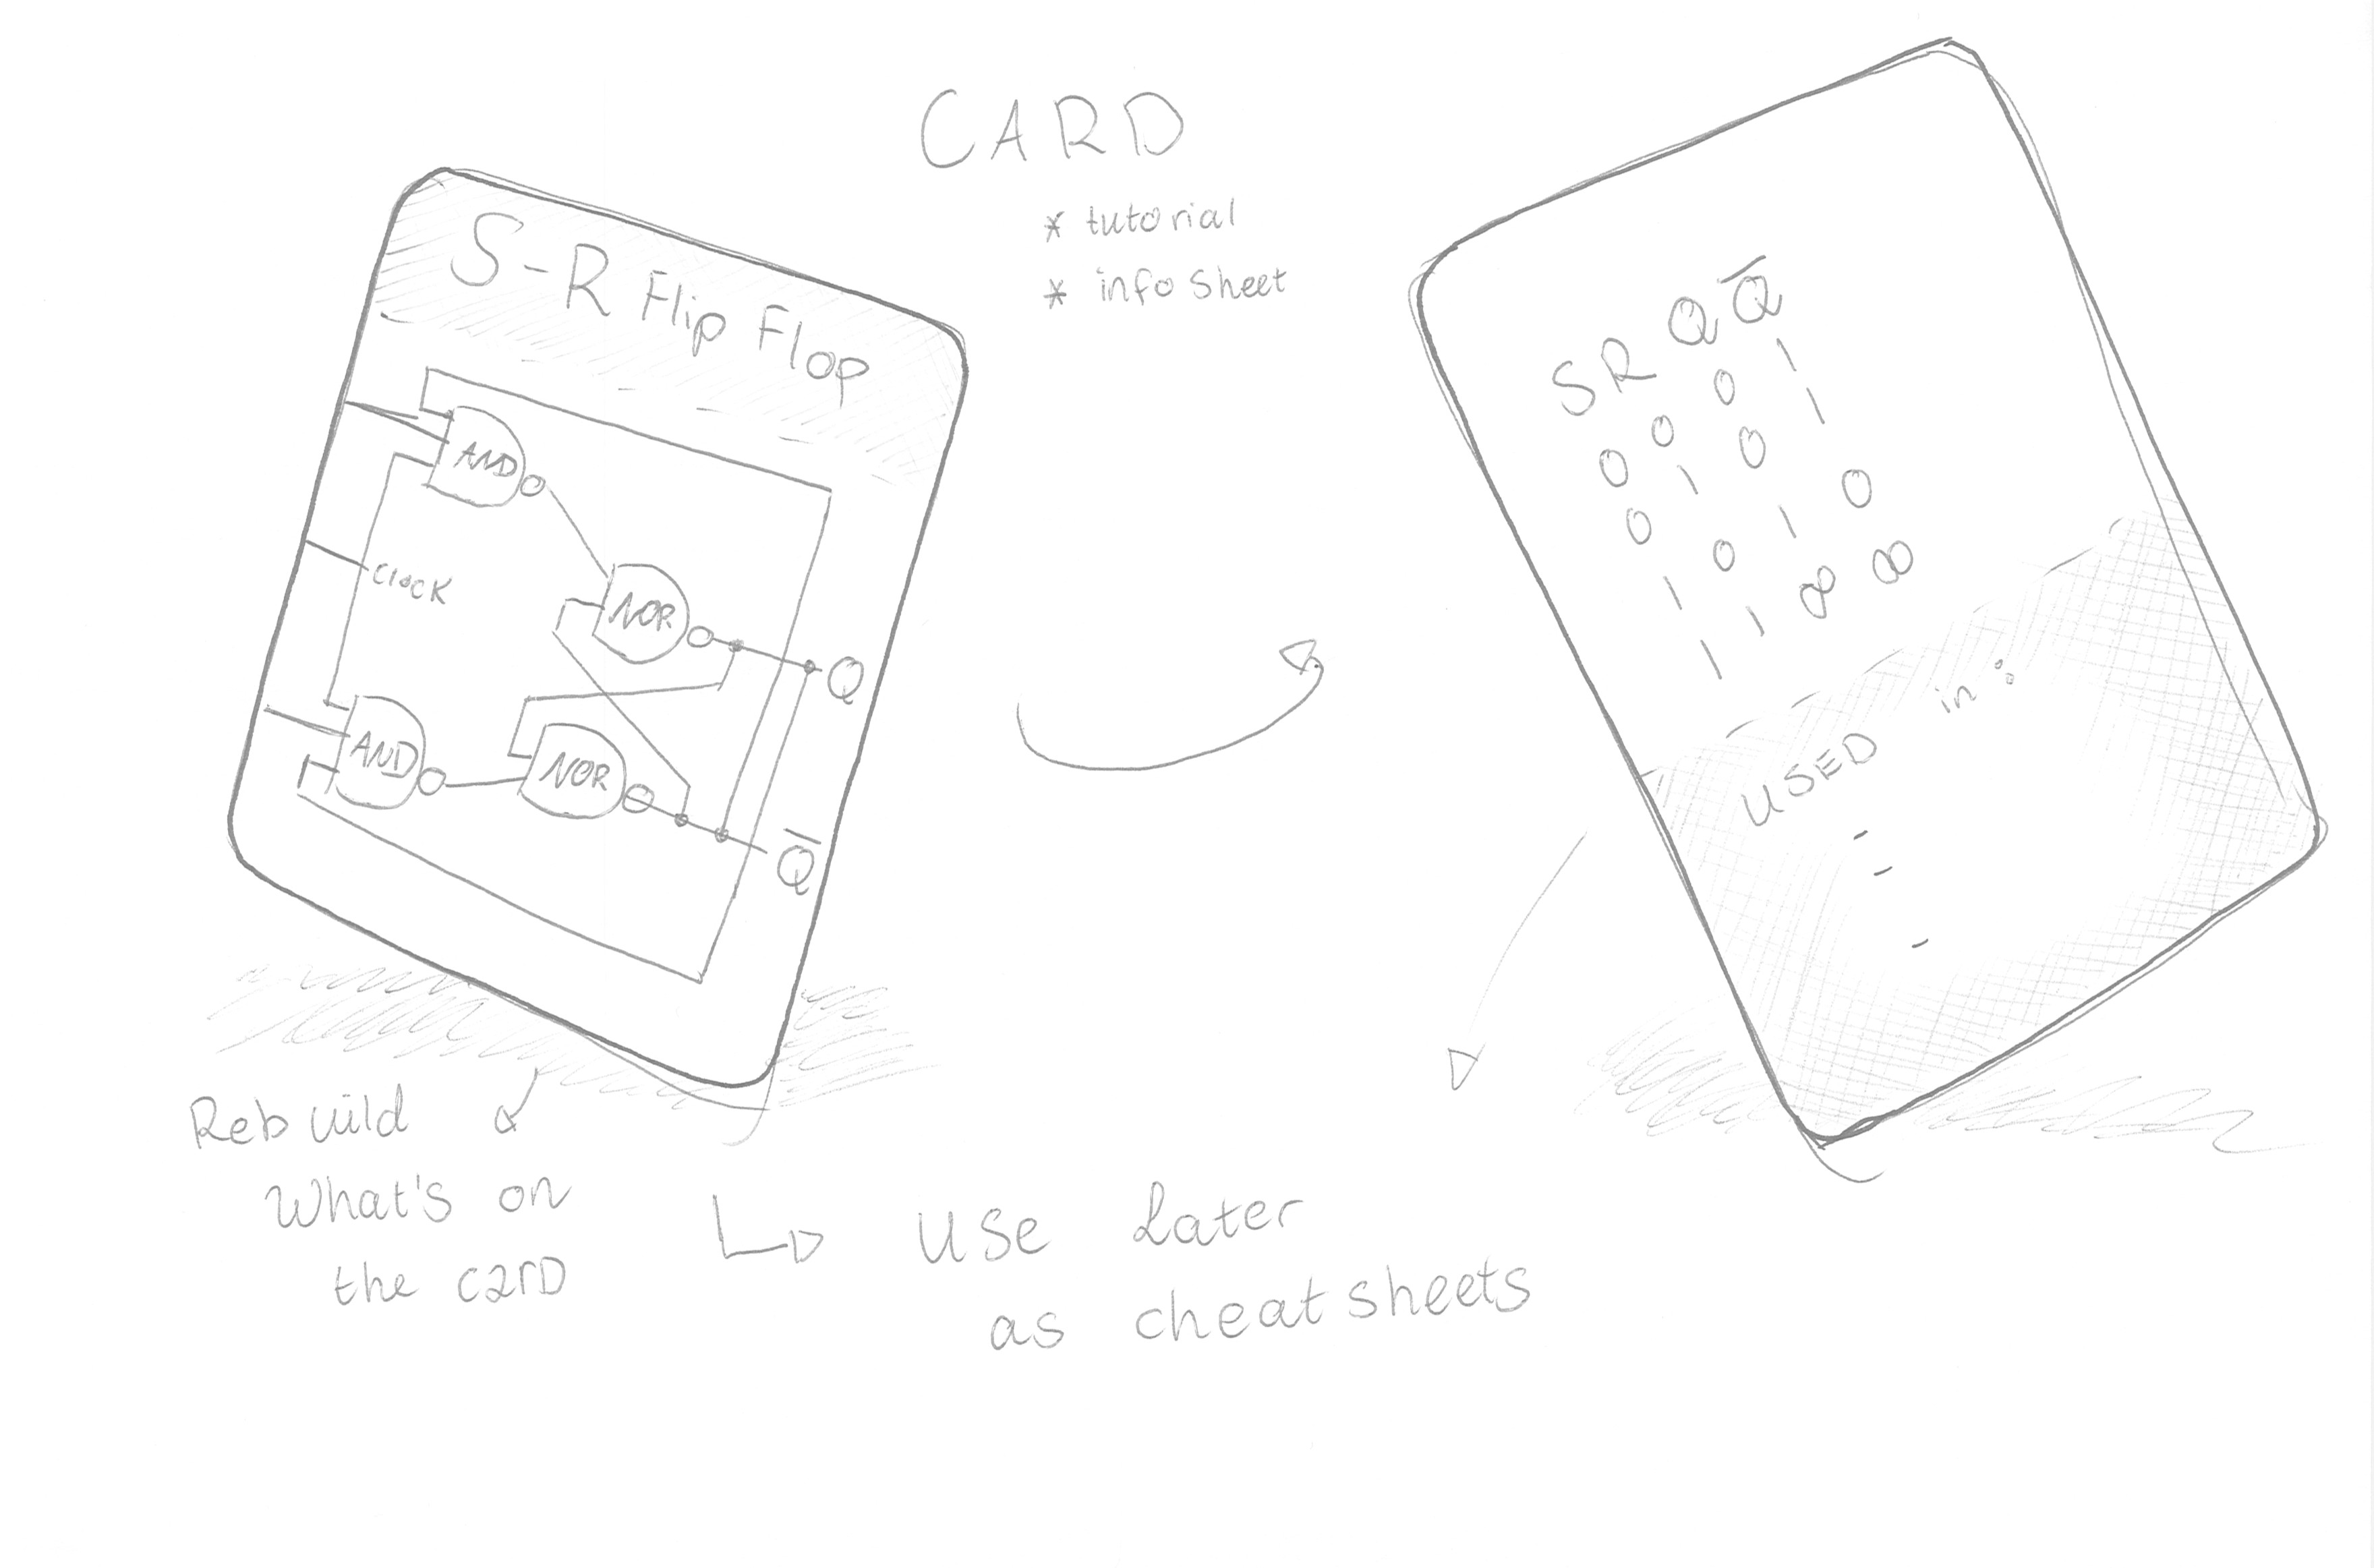 CARD
* tutorial
* info sheet
S-R Flip Flop
AND
Clock
NOR
Q
AND
NOR
Q̅
S R Q Q̅
0 0 0 1
0 1 0 1
1 0 1 0
1 1 ∞ ∞
USED in :
-
-
-
Rebuild
What's on
the card
Use Later
as cheat sheets